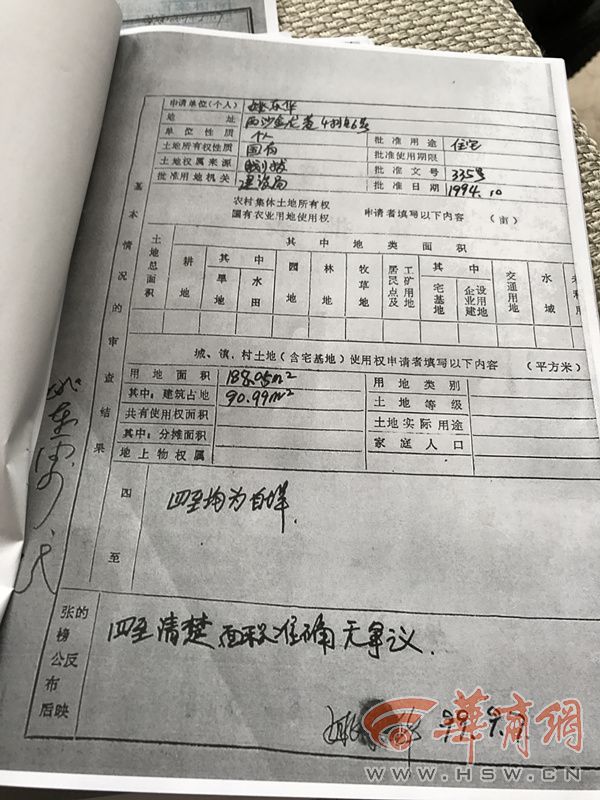 申请单位(个人) 姚东华
地 址
单位性质 个人 批准用途 住宅
土地所有权性质 国有 批准使用期限
土地权属来源 划拨 批准文号 335号
批准用地机关 建设局 批准日期 1994.10
基本情况的审查结果
农村集体土地所有权
国有农业用地使用权 申请者填写以下内容 (亩)
土地总面积 其中地类面积
耕地 其中 旱地 水田 园地 林地 牧草地 居民点及工矿用地 其中 宅基地 企业建设用地 交通用地 水域
城、镇、村土地(含宅基地)使用权申请者填写以下内容 (平方米)
用地面积 188.05m² 用地类别
其中:建筑占地 90.99m² 土地等级
共有使用权面积 土地实际用途
其中:分摊面积 家庭人口
地上物权属
四至 四至均为自墙.
张榜公布后的反映 四至清楚 面积准确 无争议.
99.9.
华商网
WWW.HSW.CN